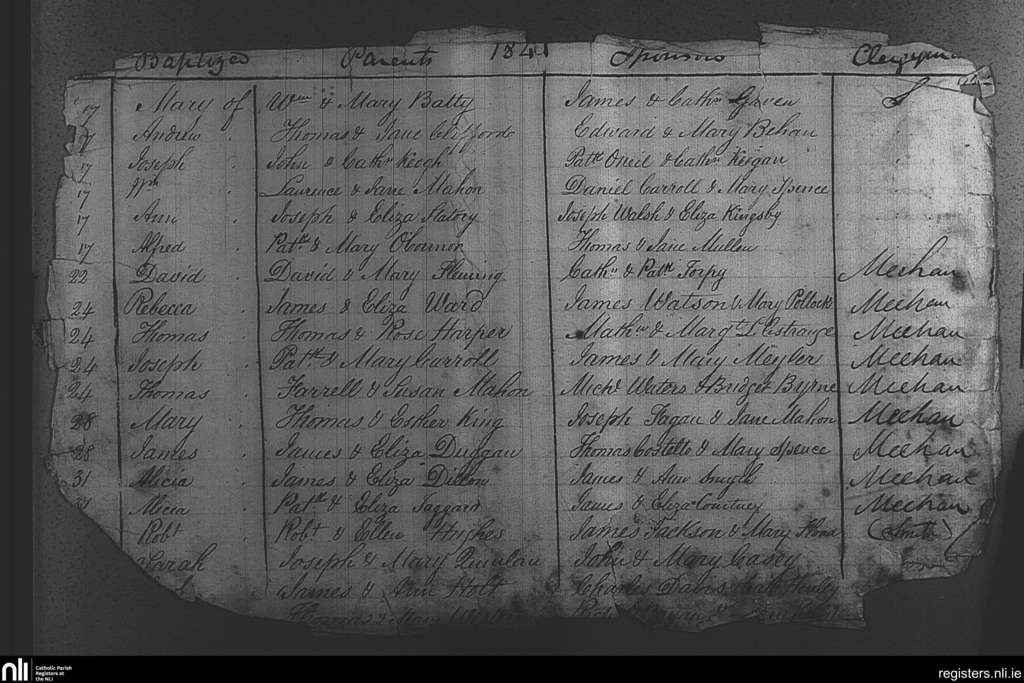 Baptized Parents 1841 Sponsors Clergymen
17 Mary of Wm & Mary Batty James & Cathn Given S
17 Andrew Thomas & Jane Clifford Edward & Mary Behan
17 Joseph John & Cathn Keogh Patk Oneil & Cathn Keegan
17 Wm Laurence & Jane Mahon Daniel Carroll & Mary Spence
17 Ann Joseph & Eliza Slatory Joseph Walsh & Eliza Kingsby
17 Alfred Patk & Mary Oconnor Thomas & Jane Mullen
22 David David & Mary Fleming Cathn & Patk Torpy Meehan
24 Rebecca James & Eliza Ward James Watson & Mary Pollock Meehan
24 Thomas Thomas & Rose Harper Mathw & Margt L'Estrange Meehan
24 Joseph Patk & Mary Carroll James & Mary Meyler Meehan
24 Thomas Farrell & Susan Mahon Michl Waters & Bridget Byrne Meehan
28 Mary Thomas & Esther King Joseph Fagan & Jane Mahon Meehan
28 James James & Eliza Duggan Thomas Costello & Mary Spence Meehan
31 Alicia James & Eliza Dillon James & Ann Smyth Meehan
31 Alicia Patk & Eliza Taggard James & Eliza Courtney Meehan
Robt Robt & Ellen Hughes James Jackson & Mary Hood (Smith)
Sarah Joseph & Mary Quinlan John & Mary Casey
James & Ann Holt Charles Davis
Thomas & Mary
nli
Catholic Parish
Registers at
the NLI
registers.nli.ie